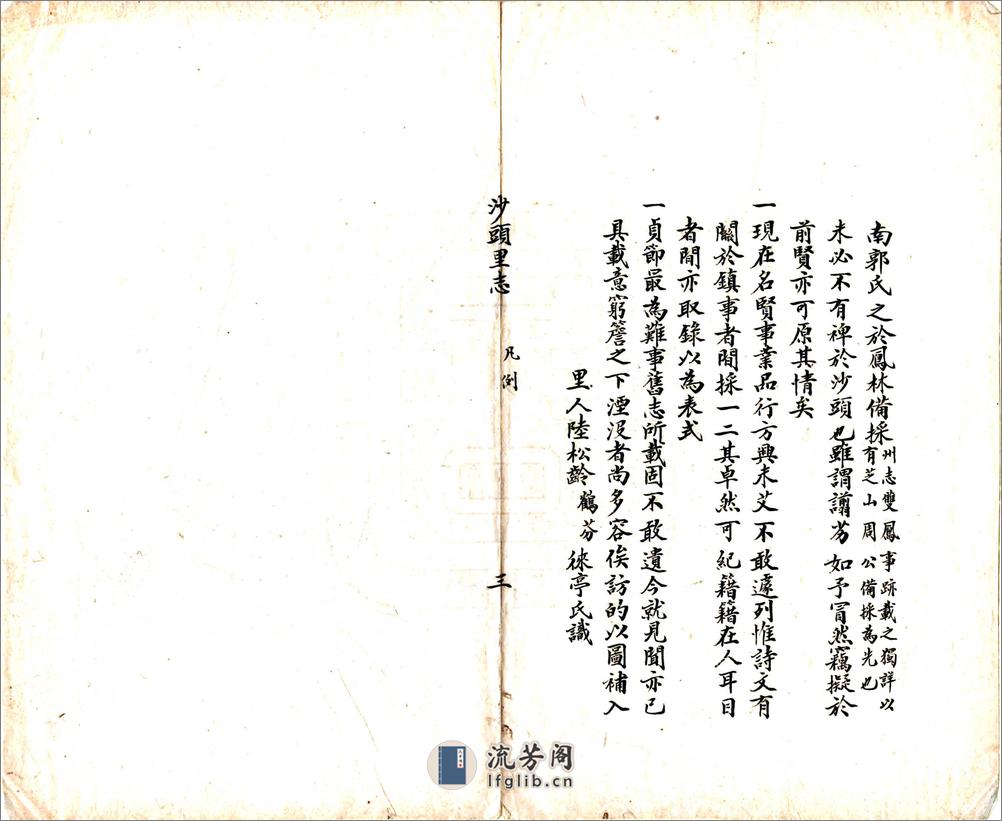 南郭氏之於鳳林備採州志雙鳳事跡載之獨詳以有芝山周公備採為先也
未必不有裨於沙頭也雖謂譾劣如予冒然竊擬於
前賢亦可原其情矣
一現在名賢事業品行方興未艾不敢遽列惟詩文有
關於鎮事者間採一二其卓然可紀籍籍在人耳目
者間亦取錄以為表式
一貞節最為難事舊志所載固不敢遺今就見聞亦已
具載意窮簷之下湮没者尚多容俟訪的以圖補入
里人陸松齡鶴芬徠亭氏識
沙頭里志
凡例
三
流芳阁
lfglib.cn